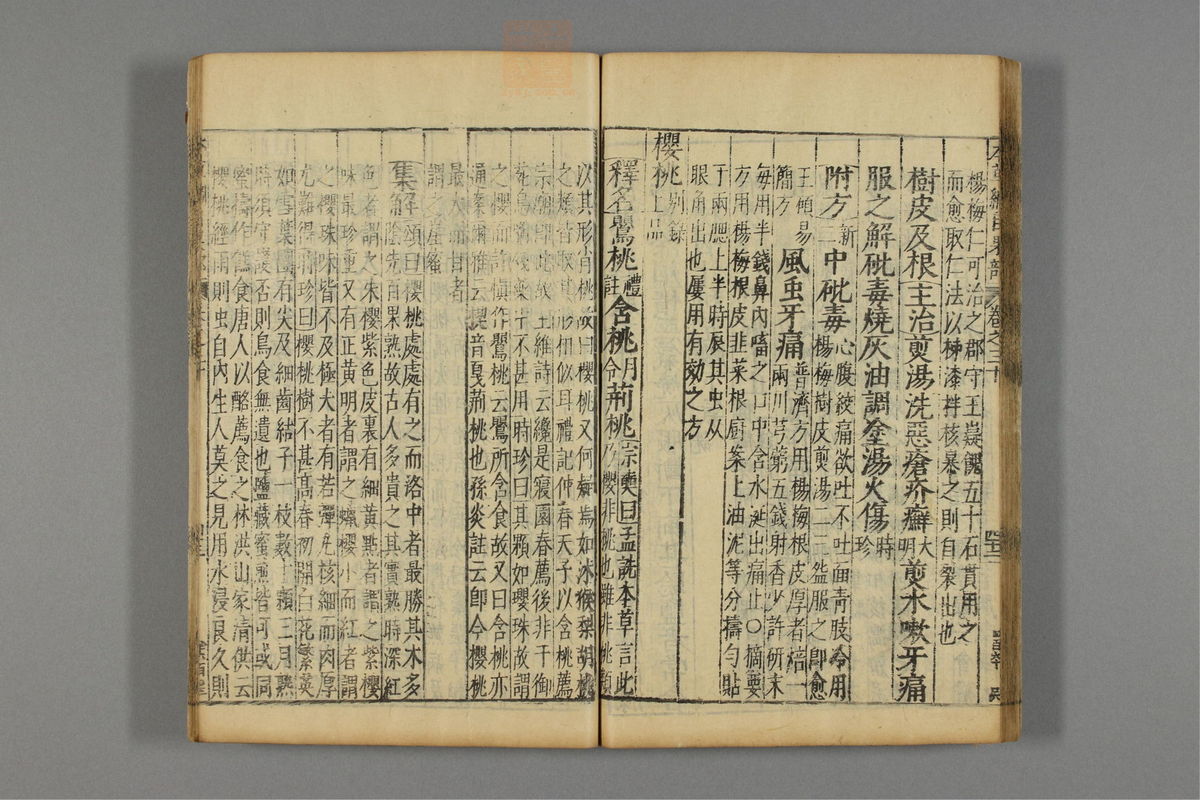 楊梅仁可治之郡守王嶷餽五十石貫用之
而愈取仁法以柹漆拌核暴之則自裂出也
樹皮及根主治煎湯洗惡瘡疥癬大明煎水嗽牙痛
服之解砒毒燒灰油調塗湯火傷時珍
附方新二中砒毒心腹絞痛欲吐不吐面青肢冷用楊梅樹皮煎湯二三盌服之即愈
王碩易簡方風虫牙痛普濟方用楊梅根皮厚者焙一兩川芎藭五錢麝香少許研末
每用半錢鼻內㗜之口中含水涎出痛止○摘要
方用楊梅根皮韭菜根廚案上油泥等分擣勻貼
于兩腮上半時辰其虫从
眼角出也屢用有効之方
櫻桃別錄上品
釋名鸎桃禮註含桃月令荊桃宗奭曰孟詵本草言此乃櫻非桃也雖非桃類
以其形肖桃故曰櫻桃又何疑焉如沐猴梨胡桃
之類皆取其形相似耳禮記仲春天子以含桃薦
宗廟即此故王維詩云纔是寢園春薦後非干御
苑鳥銜殘藥中不甚用時珍曰其顆如瓔珠故謂
之櫻而許慎作鸎桃云鸎所含食故又曰含桃亦
通案爾雅云楔音戛荊桃也孫炎註云即今櫻桃
最大而甘者
謂之崖蜜
集解頌曰櫻桃處處有之而洛中者最勝其木多陰先百果熟故古人多貴之其實熟時深紅
色者謂之朱櫻紫色皮裏有細黃點者謂之紫櫻
味最珍重又有正黃明者謂之蠟櫻小而紅者謂
之櫻珠味皆不及極大者有若彈丸核細而肉厚
尤難得時珍曰櫻桃樹不甚高春初開白花繁英
如雪葉團有尖及細齒結子一枝數十顆三月熟
時須守護否則鳥食無遺也鹽藏蜜煎皆可或同
蜜擣作餻食唐人以酪薦食之林洪山家清供云
櫻桃經雨則虫自內生人莫之見用水浸良久則